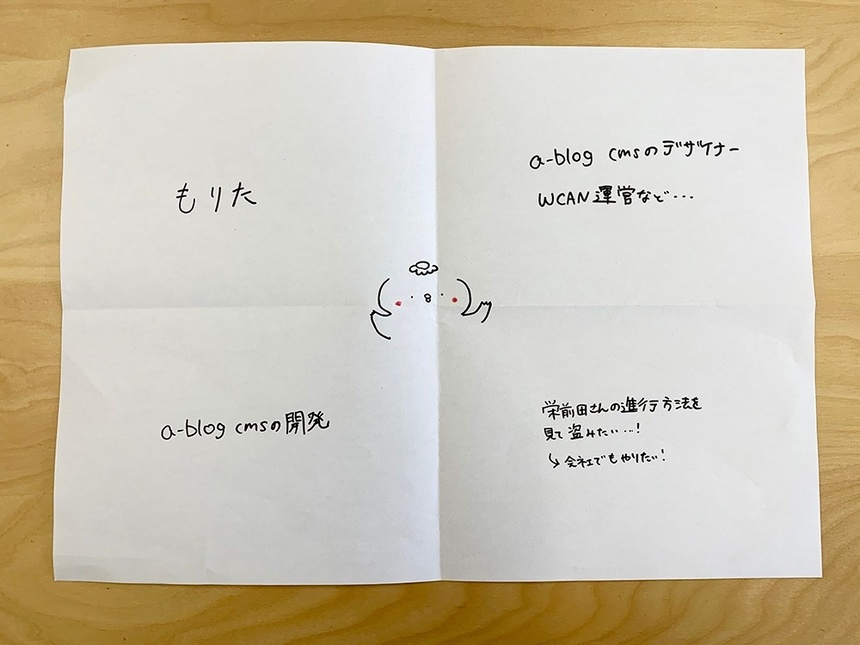 もりた
a-blog cmsのデザイナー
WCAN 運営など・・・
a-blog cmsの開発
栄前田さんの進行方法を
見て盗みたい…!
↳ 会社でもやりたい!